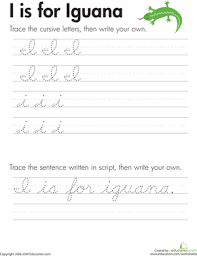 I is for Iguana
Trace the cursive letters, then write your own.
I I I
I I I
i i i
i i i
Trace the sentence written in script, then write your own.
I is for iguana.